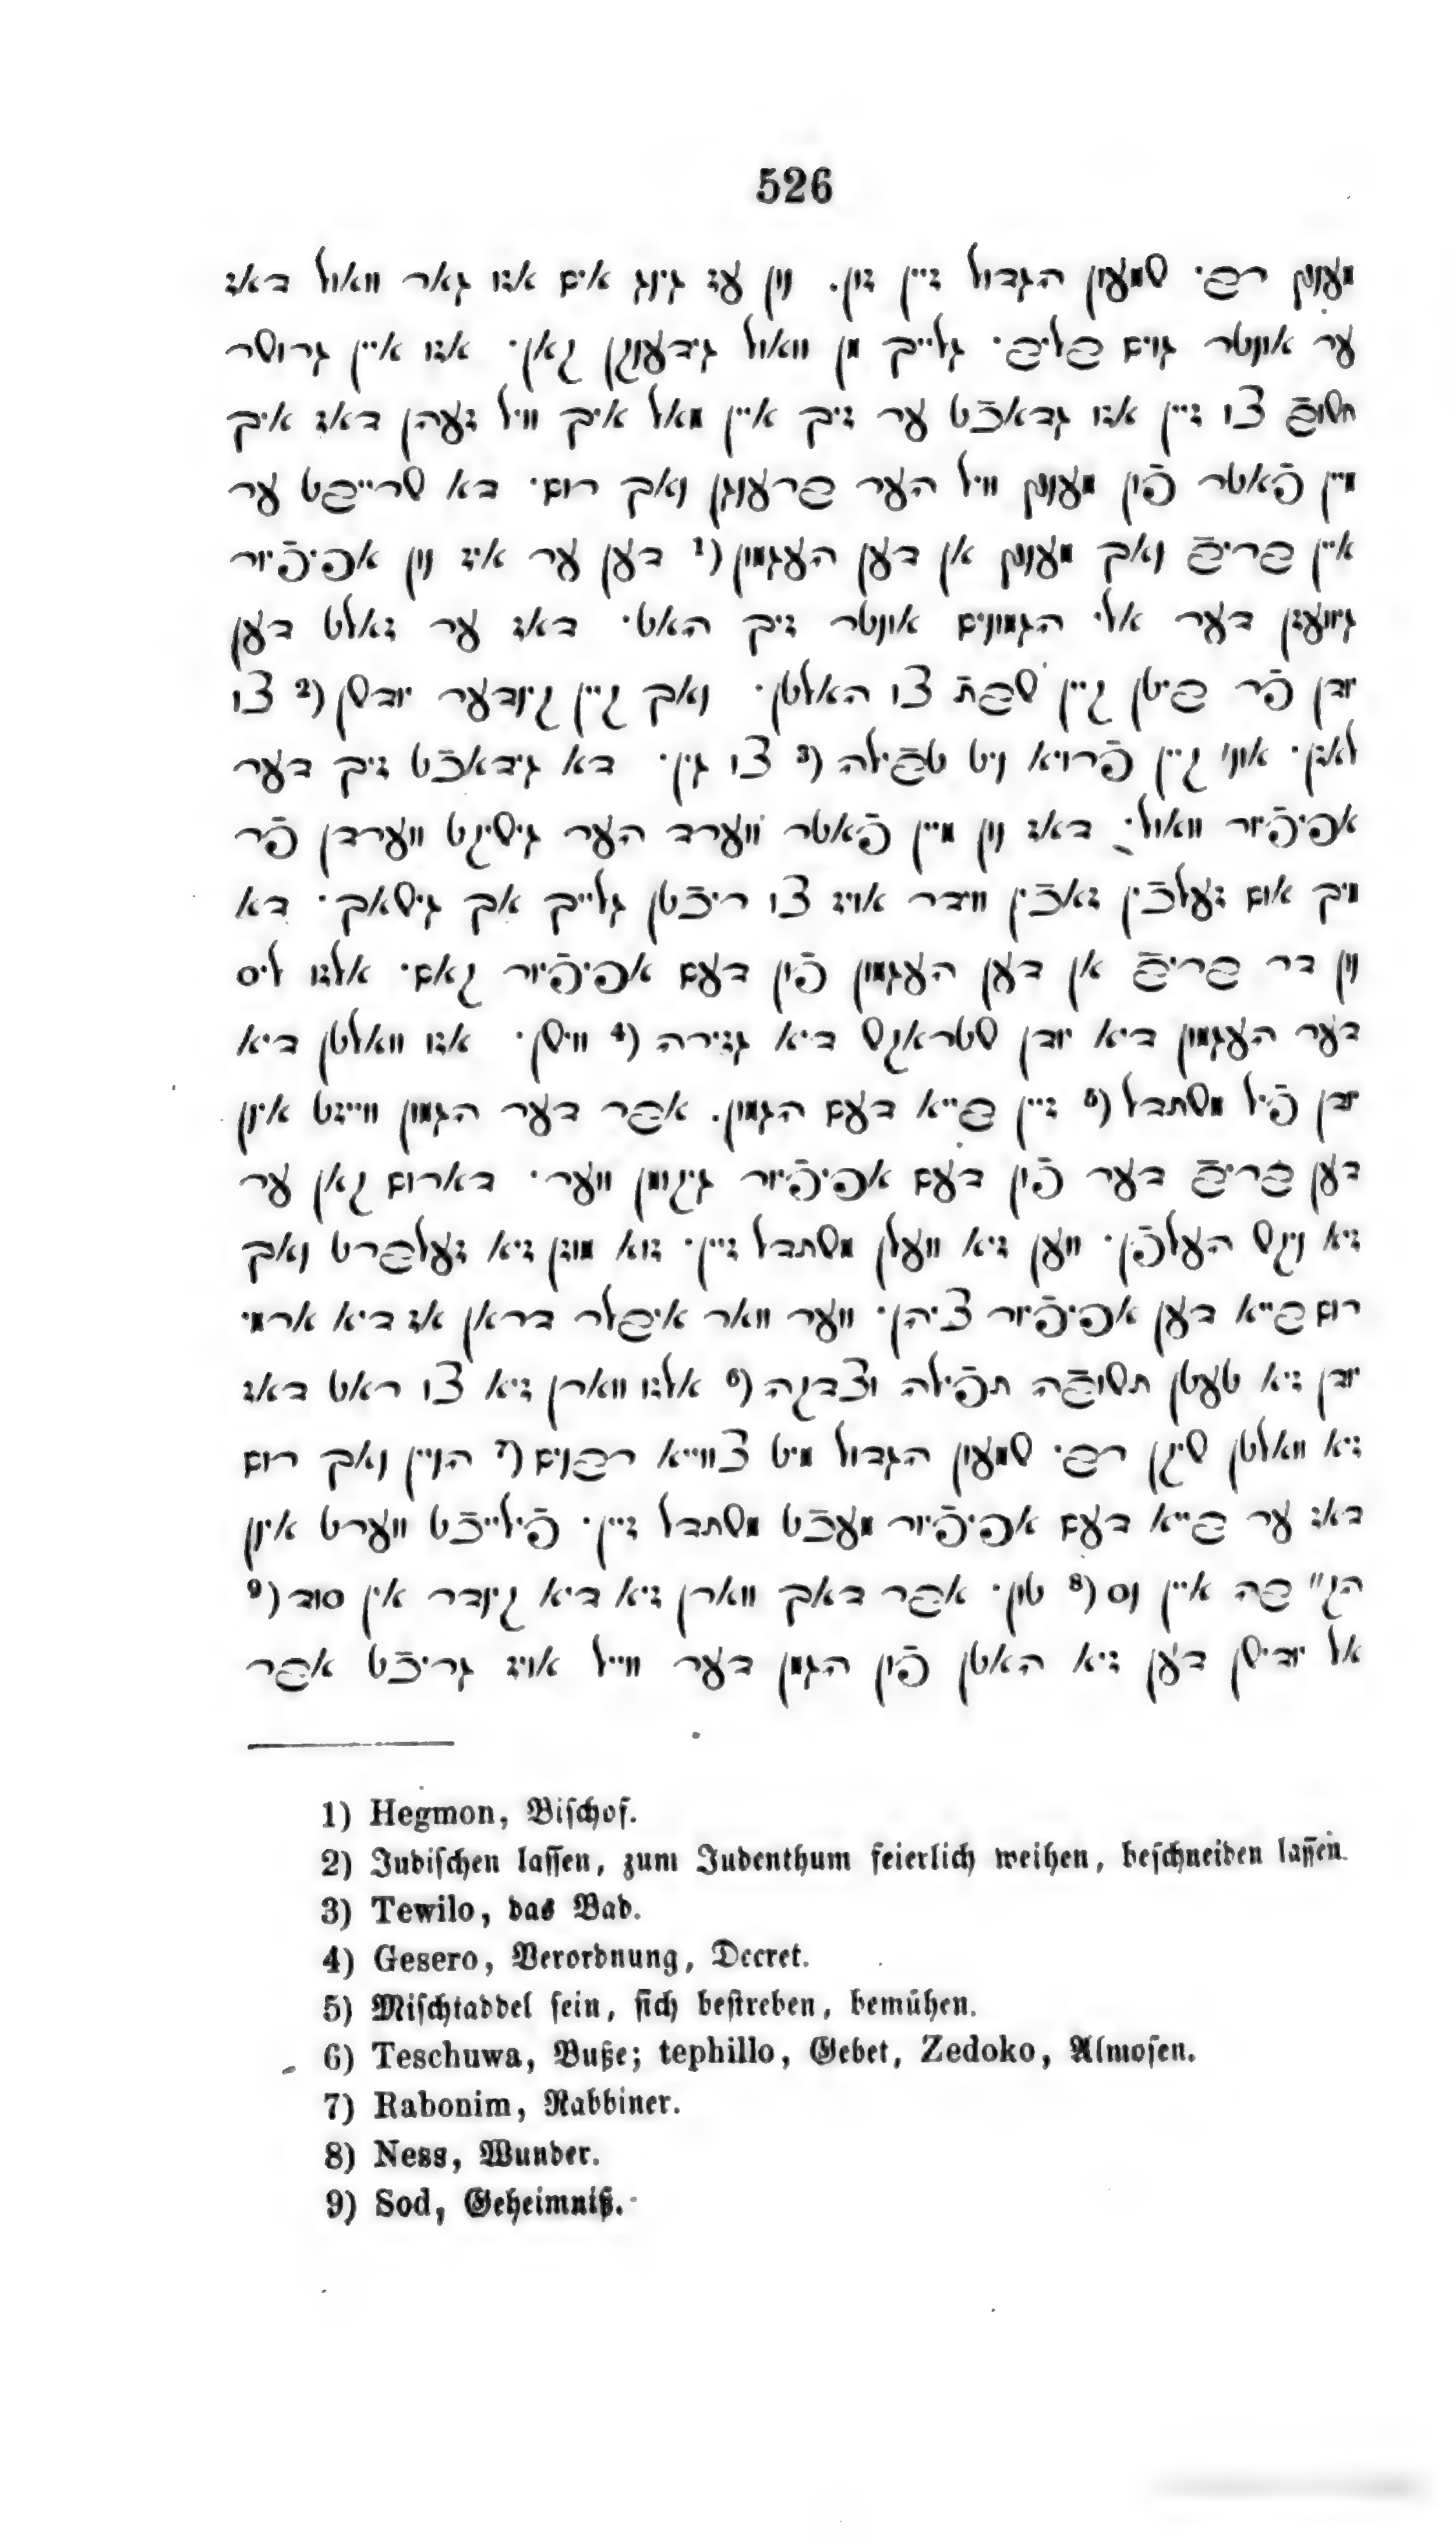 526
מענץ רבי שמעון הגדול זיין זון. נון עז גינג אים אזו גאר וואול דאז
ער אונטר גוים בליב׳ גלייך מן וואול גידענקן קאן׳ אזו איין גרושר
חשוב צו זיין אזו גדאכֿט ער זיך איין מאל איך וויל זעהן דאז איך
מיין פֿאטר פֿון מענץ וויל הער ברענגן נאך רום׳ דא שרייבט ער
איין בריבֿ נאך מענץ אן דען העגמון (1 דען ער איז נון אפיפֿיור
גיוועזן דער אלי הגמונים אונטר זיך האט׳ דאז ער זאלט דען
יודן פֿר ביטן קיין שבת צו האלטן׳ נאך קיין קינדער יודשן (2 צו
לאזן׳ אונ׳ קיין פֿרויא ניט טבֿילה (3 צו גין׳ דא גידאכֿט זיך דער
אפיפֿיור וואול׳ דאז נון מיין פֿאטר ווערד הער גישיקט ווערדן פֿר
מיך אום זעלכֿין זאכֿין ווידר אויז צו ריכֿטן גלייך אך גישאך׳ דא
נון דר בריבֿ אן דען העגמון פֿון דעם אפיפֿיור קאם׳ אלזו ליס
דער העגמון דיא יודן שטראקש דיא גזירה (4 ווישן׳ אזו וואלטן דיא
יודן פֿיל משתדל (5 זיין בייא דעם הגמון. אבר דער הגמון ווייזט אינן
דען בריבֿ דער פֿון דעם אפיפֿיור גיקומן ווער׳ דארום קאן ער
זיא ניקש העלפֿן׳ ווען זיא וועלן משתדל זיין׳ זוא מוזן זיא זעלברט נאך
רום בייא דען אפיפֿיור ציהן׳ ווער וואר איבלר דראן אז דיא ארמי
יודן זיא טעטן תשובֿה תפֿילה וצדקה (6 אלזו ווארן זיא צו ראט דאז
זיא וואלטן שיקן רבי שמעון הגדול מיט צווייא רבנים (7 הניין נאך רום
דאז ער בייא דעם אפיפֿיור מעכֿט משתדל זיין׳ פֿילייכֿט ווערט אינן
הק״בה איין נס (8 טון׳ אבר דאך ווארן זיא דיא קינדר אין סוד (9
אל יודישן דען זיא האטן פֿון הגמן דער ווייל אויז גריכֿט אבר
1) Hegmon, Bischof.
2) Judischen lassen, zum Judenthum feierlich weihen, beschneiden lassen.
3) Tewilo, das Bad.
4) Gesero, Verordnung, Decret.
5) Mischtaddel sein, sich bestreben, bemühen.
6) Teschuwa, Buße; tephillo, Gebet, Zedoko, Almosen.
7) Rabonim, Rabbiner.
8) Ness, Wunder.
9) Sod, Geheimniß.